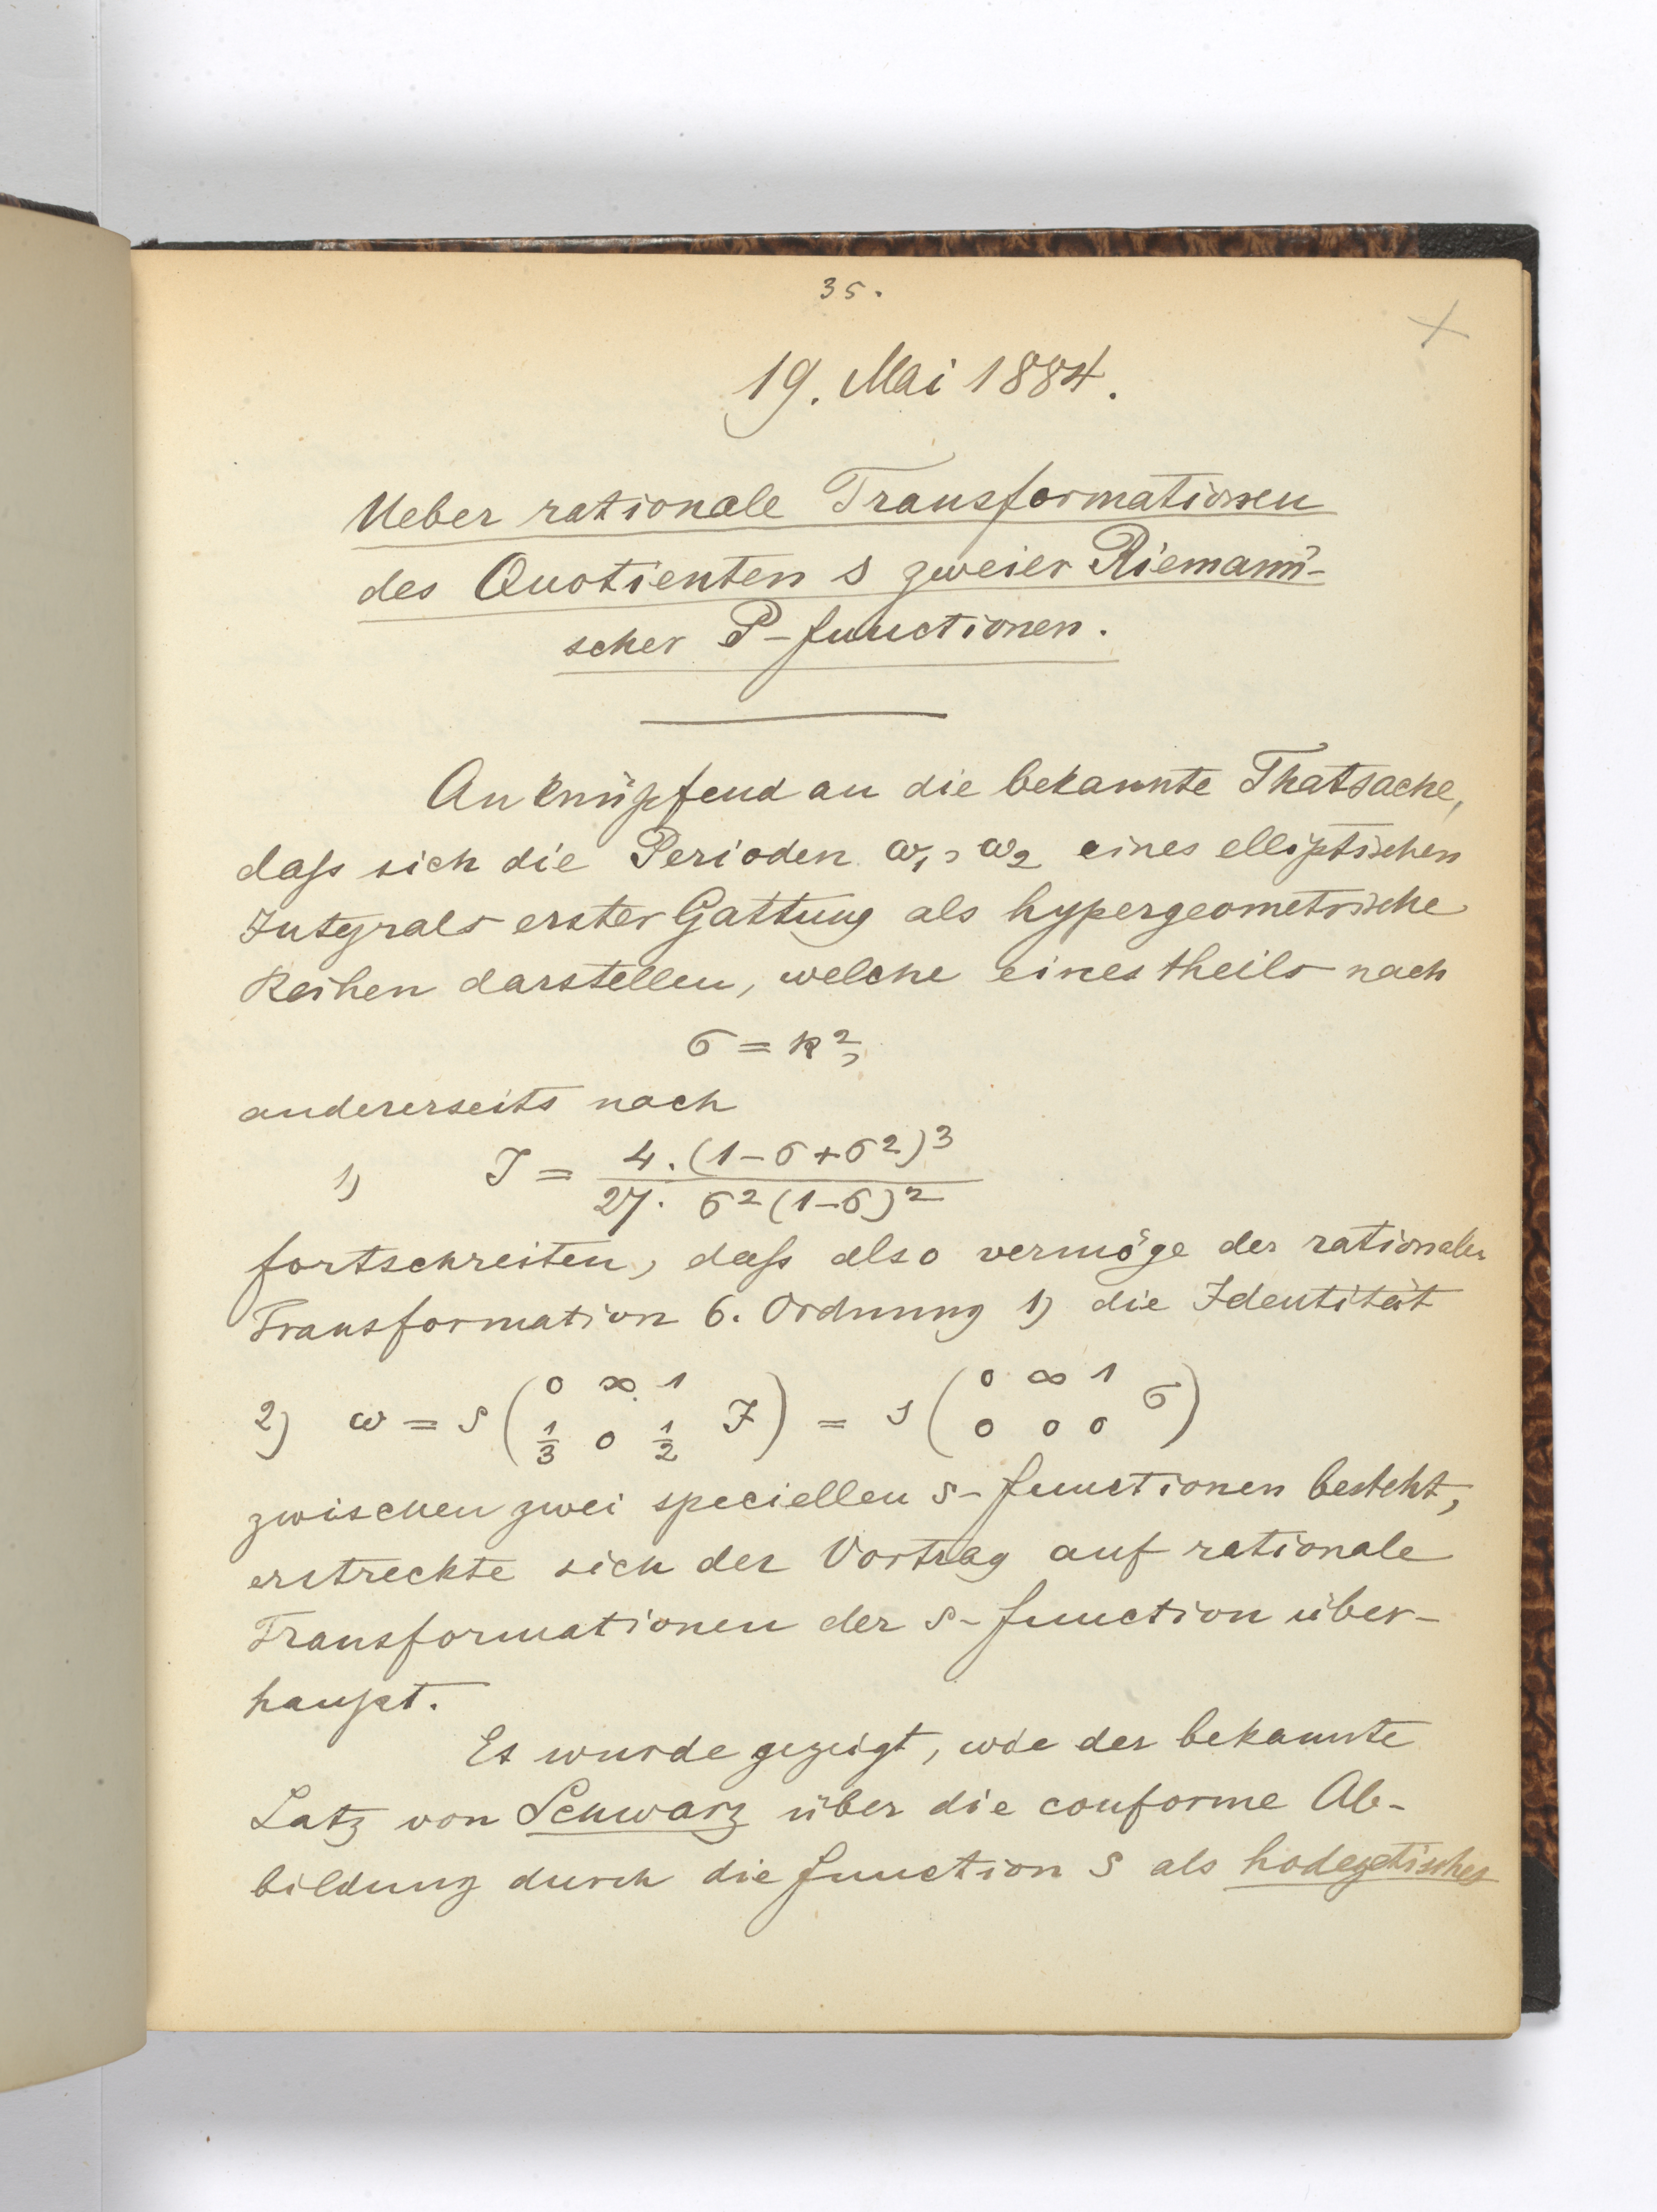 35.
19. Mai 1884.
Ueber rationale Transformationen
des Quotienten s zweier Riemann'-
scher P-functionen.
Anknüpfend an die bekannte Thatsache,
daſs sich die Perioden ω₁, ω₂ eines elliptischen
Integrals erster Gattung als hypergeometrische
Reihen darstellen, welche eines theils nach
σ = k²,
andererseits nach
1) J = 4.(1-σ+σ²)³ / 27. σ²(1-σ)²
fortschreiten, daſs also vermöge der rationalen
Transformation 6. Ordnung 1) die Identität
2) ω = s(0 ∞ 1 / 1/3 0 1/2 J) = s(0 ∞ 1 / 0 0 0 σ)
zwischen zwei speciellen s-functionen besteht,
erstreckte sich der Vortrag auf rationale
Transformationen der s-function über-
haupt.
Es wurde gezeigt, wie der bekannte
Satz von Schwarz über die conforme Ab-
bildung durch die function s als hodegetisches